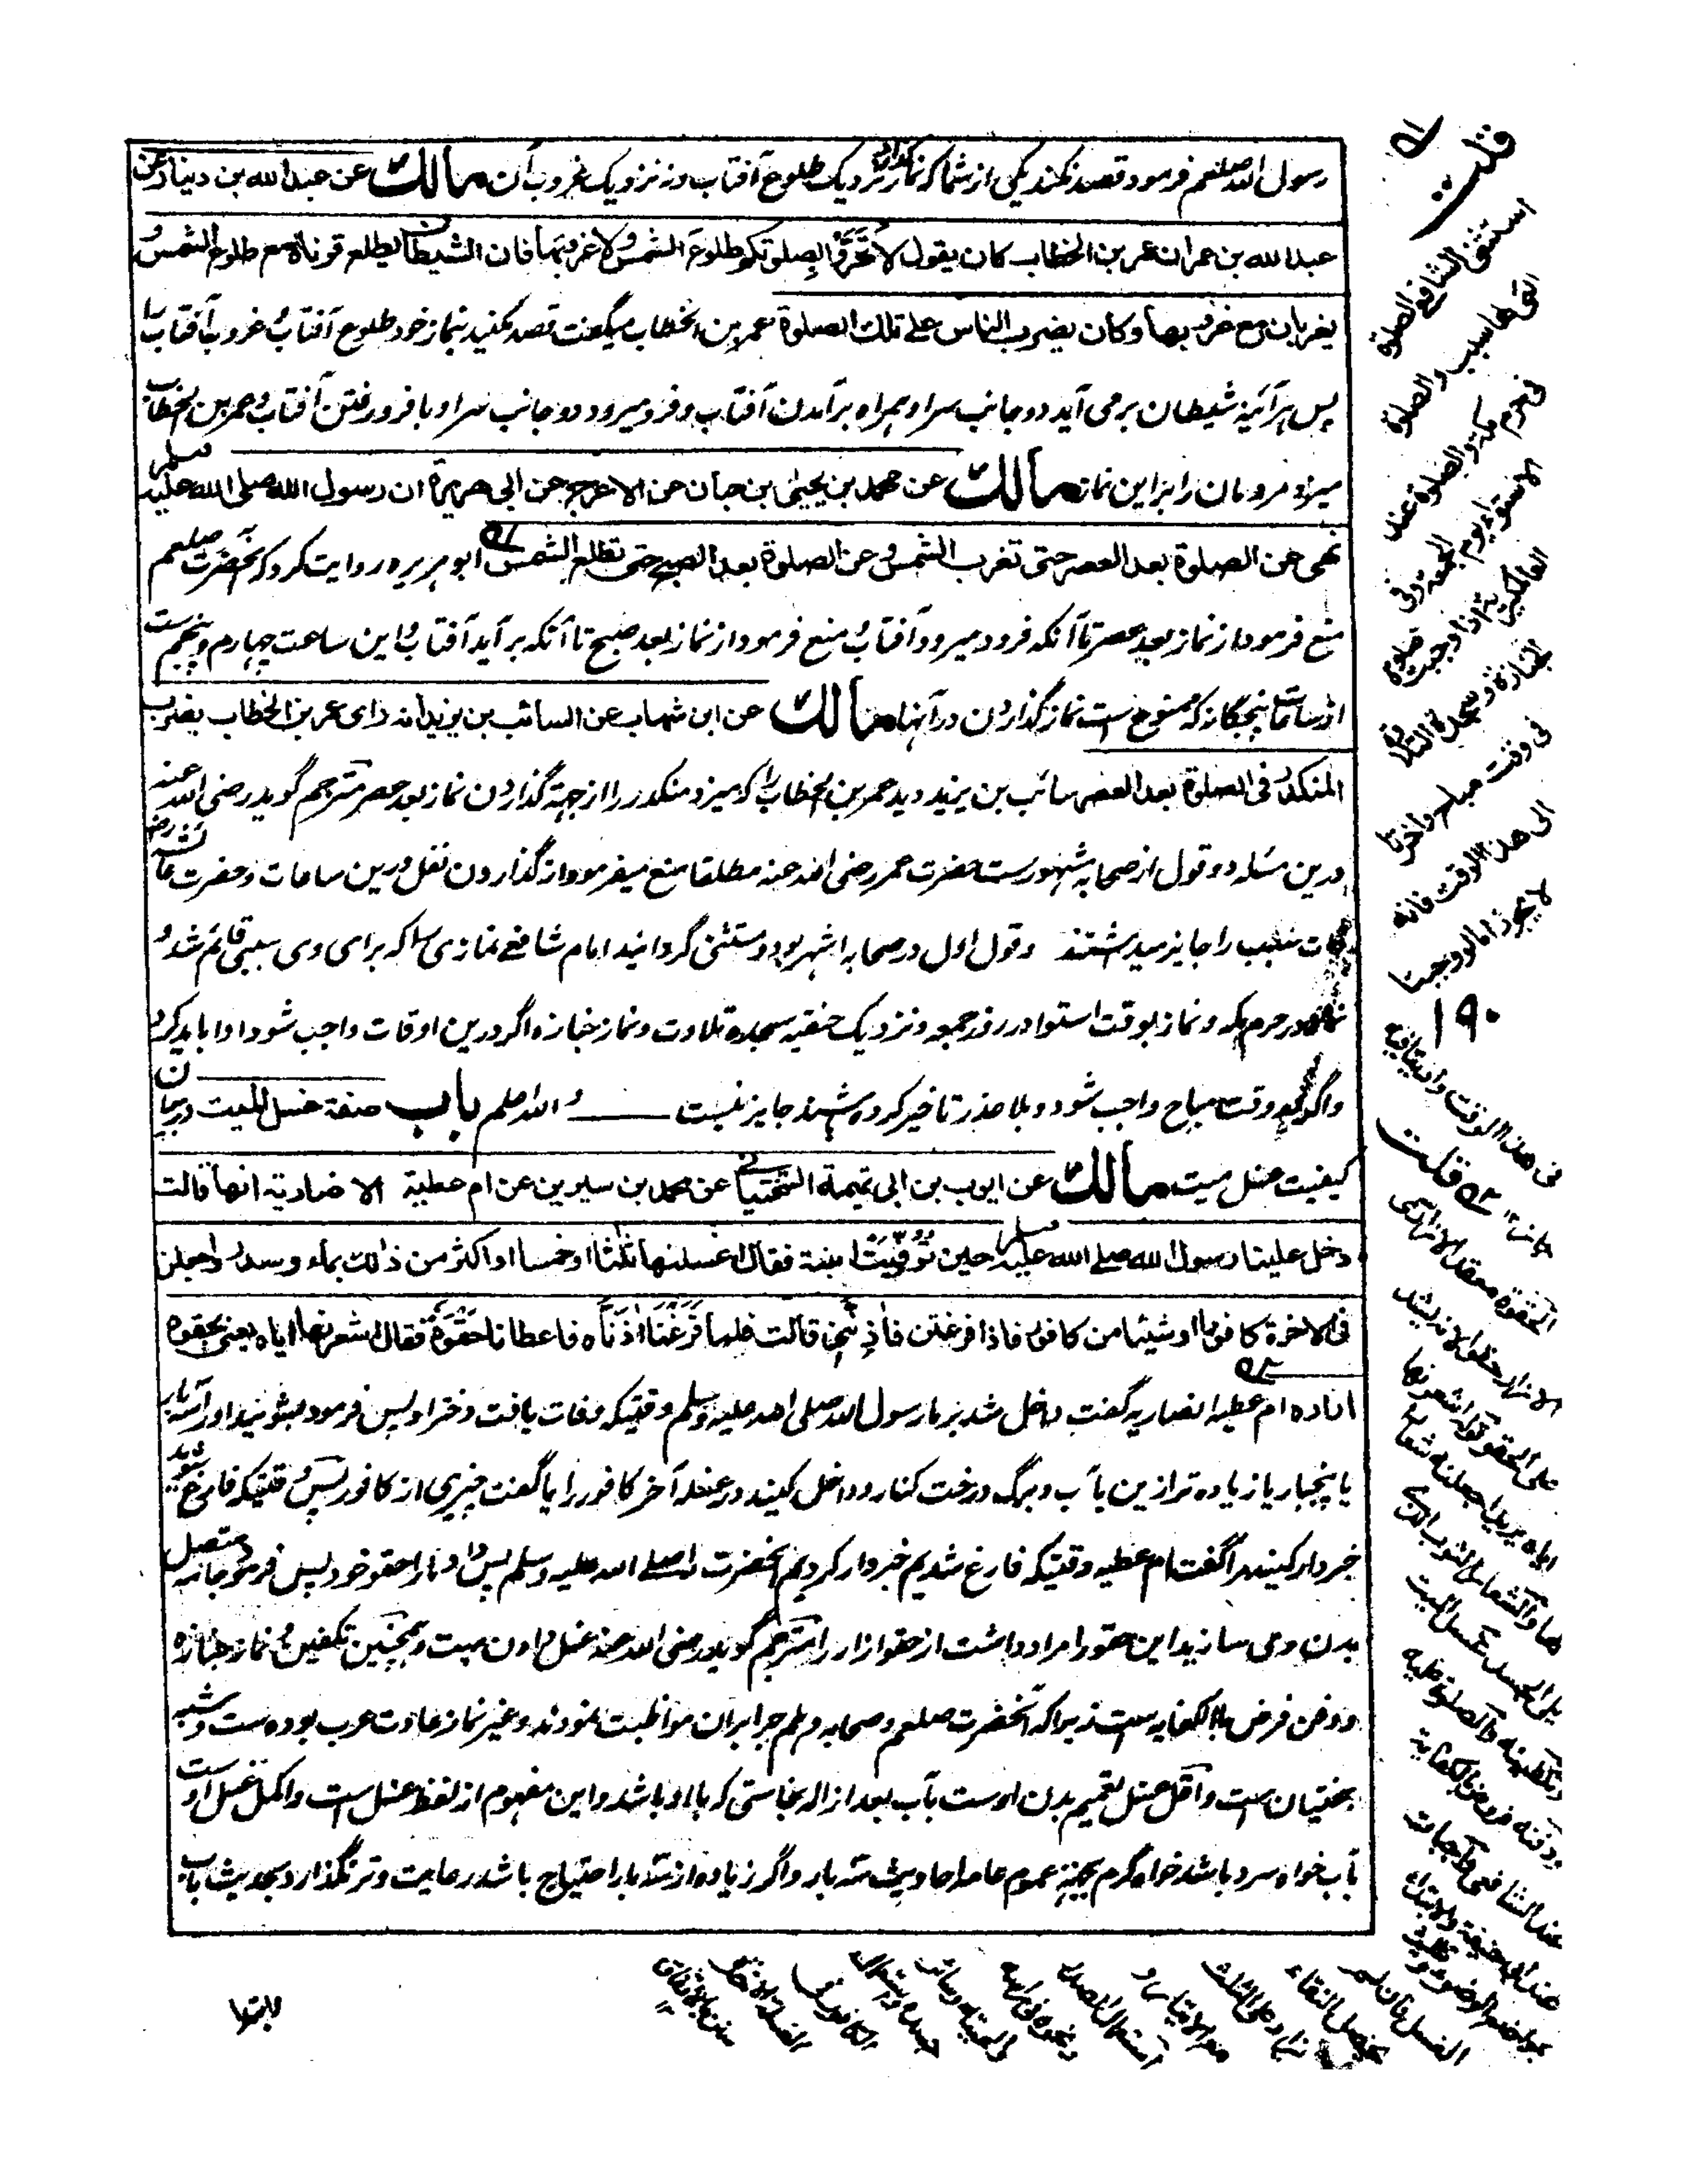 رسول الله صلعم فرمود قصد نکند یکی از شما که نماز گذارد نزدیک طلوع آفتاب و نه نزدیک غروب آن مالك عن عبد الله بن دینار عن
عبد الله بن عمر ان عمر بن الخطاب كان يقول لا تَحَرَّوْا بصلوتكم طلوع الشمس ولا غروبها فان الشيطان يطلع قرناه مع طلوع الشمس و
يغربان مع غروبها وكان يضرب الناس على تلك الصلوة عمر بن الخطاب میگفت قصد مکنید بنماز خود طلوع آفتاب و غروب آفتاب را
پس هر آئینه شیطان برمی آید دو جانب سر او همراه برآمدن آفتاب و فرو میرود دو جانب سر او با فرو رفتن آفتاب و عمر بن الخطاب
میزد مردمان را بر این نماز مالك عن محمد بن يحيى بن حبان عن الاعرج عن ابى هريرة ان رسول الله صلى الله عليه وسلم
نهى عن الصلوة بعد العصر حتى تغرب الشمس وعن الصلوة بعد الصبح حتى تطلع الشمس ابو هریره روایت کرد که آنحضرت صلعم
منع فرمود از نماز بعد عصر تا آنکه فرود میرود آفتاب و منع فرمود از نماز بعد صبح تا آنکه برآید آفتاب و این ساعت چهارم و پنجم ست
از ساعات پنجگانه که ممنوع است نماز گذاردن در آنها مالك عن ابن شهاب عن السائب بن يزيد انه راى عمر بن الخطاب يضرب
المنكدر فى الصلوة بعد العصر سائب بن یزید دید عمر بن الخطاب را که میزد منکدر را از جهة گذاردن نماز بعد عصر مترجم گوید رضی الله عنه
درین مسئله دو قول از صحابه مشهورست حضرت عمر رضی الله عنه مطلقا منع میفرمود از گذاردن نفل درین ساعات و حضرت عائشه رض
ذات سبب را جایز میداشتند وقول اول در صحابه اشهر بود و مستثنی گردانید امام شافعے نمازی را که برای وی سببی قائم شد و
نماز در حرم مکه و نماز بوقت استوا در روز جمعه و نزدیک حنفیه سجده تلاوت و نماز جنازه اگر درین اوقات واجب شود ادا باید کرد
و اگر در وقت مباح واجب شود و بلا عذر تاخیر کرده باشند جایز نیست والله اعلم باب صفة غسل الميت در بیان
کیفیت غسل میت مالك عن ايوب بن ابى تميمة السختيانى عن محمد بن سيرين عن ام عطية الانصارية انها قالت
دخل علينا رسول الله صلى الله عليه وسلم حين تُوُفِّيَتْ ابنته فقال اغسلنها ثلثا او خمسا او اكثر من ذلك بماء وسدر واجعلن
فى الاخرة كافورا او شيئا من كافور فاذا فرغتن فاٰذِنَّنِى قالت فلما فَرَغْنَا اٰذَنَّاه فاعطانا حَقْوَه فقال اشعرنها اياه يعنى بحقوه
ازاره ام عطیه انصاریه گفت داخل شد بر ما رسول الله صلی الله علیه وسلم وقتیکه وفات یافت دختر او پس فرمود بشوئید او را سه بار
یا پنجبار یا زیاده تر ازین بآب و برگ درخت کنار و داخل کنید در غسل آخر کافور را یا گفت چیزی از کافور پس وقتیکه فارغ شوید
خبردار کنید مرا گفت ام عطیه وقتیکه فارغ شدیم خبردار کردیم آنحضرت را صلے الله علیه وسلم پس داد ما را حقو خود پس فرمود جامه متصل
بدن وی سازید این حقو را مراد داشت از حقو ازار را مترجم گوید رضی الله عنه غسل دادن میت و همچنین تکفین و نماز جنازه
و دفن فرض بالکفایه ست زیرا که آنحضرت صلعم و صحابه و هلم جرا بران مواظبت نمودند و غیر نماز عادت عرب بوده ست و شبه
بختیان ست و اقل غسل تعمیم بدن اوست بآب بعد ازاله نجاستی که با او باشد و این مفهوم از لفظ غسل است و اکمل غسل اوست
بآب خواه سرد باشد خواه گرم بجهة عموم ماء احادیث سه بار و اگر زیاده از سه بار احتیاج باشد رعایت وتر نگذارد بحدیث باب
قلت
استثنى الشافعى الصلوة
التى لها سبب والصلوة
فى حرم مكة والصلوة عند
الاستواء يوم الجمعة وفى
العالمگيرية اذا وجبت صلوة
الجنازة وسجدة التلاوة
فى وقت مباح واخرتا
الى هذا الوقت فانه
لا يجوز اما لو وجبتا
۱۹۰
فى هذا الوقت واديتا فيه
قلت
الحقوة معقد الازار
على الحقو قوله اشعرنها
اياه يريد اجعلنه شعارا
لها والشعار الثوب الذى
يلى الجسد غسل الميت
وتكفينه والصلوة عليه
ودفنه فروض بالكفاية